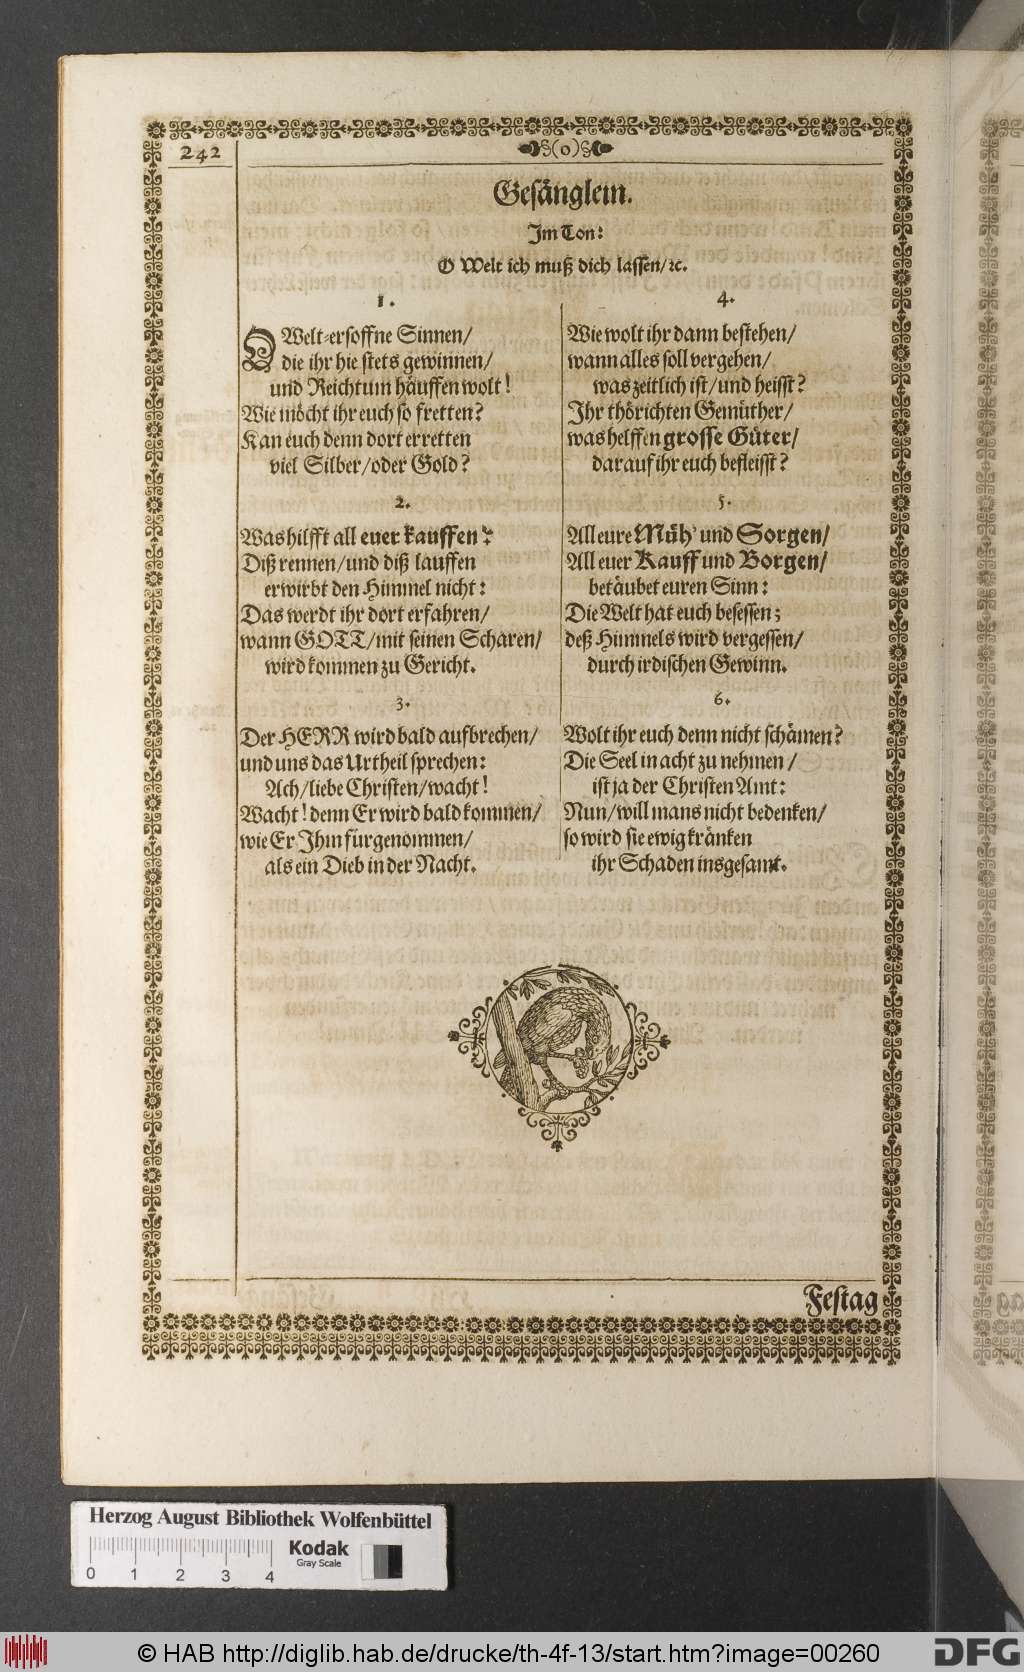 242
(o)
Gesänglein.
Im Ton:
O Welt ich muß dich lassen/ꝛc.
1.
O Welt-ersoffne Sinnen/
die ihr hie stets gewinnen/
und Reichtum häuffen wolt!
Wie möcht ihr euch so fretten?
Kan euch denn dort erretten
viel Silber/oder Gold?
2.
Was hilfft all euer kauffen?
Diß rennen/und diß lauffen
erwirbt den Himmel nicht:
Das werdt ihr dort erfahren/
wann GOTT/mit seinen Scharen/
wird kommen zu Gericht.
3.
Der HERR wird bald aufbrechen/
und uns das Urtheil sprechen:
Ach/liebe Christen/wacht!
Wacht! denn Er wird bald kommen/
wie Er Ihm fürgenommen/
als ein Dieb in der Nacht.
4.
Wie wolt ihr dann bestehen/
wann alles soll vergehen/
was zeitlich ist/und heisst?
Ihr thörichten Gemüther/
was helffen grosse Güter/
darauf ihr euch befleisst?
5.
All eure Müh' und Sorgen/
All euer Kauff und Borgen/
betäubet euren Sinn:
Die Welt hat euch besessen;
deß Himmels wird vergessen/
durch irdischen Gewinn.
6.
Wolt ihr euch denn nicht schämen?
Die Seel in acht zu nehmen/
ist ja der Christen Amt:
Nun/will mans nicht bedenken/
so wird sie ewig kränken
ihr Schaden insgesamt.
Festag
Herzog August Bibliothek Wolfenbüttel
Kodak
Gray Scale
0 1 2 3 4
© HAB http://diglib.hab.de/drucke/th-4f-13/start.htm?image=00260
DFG